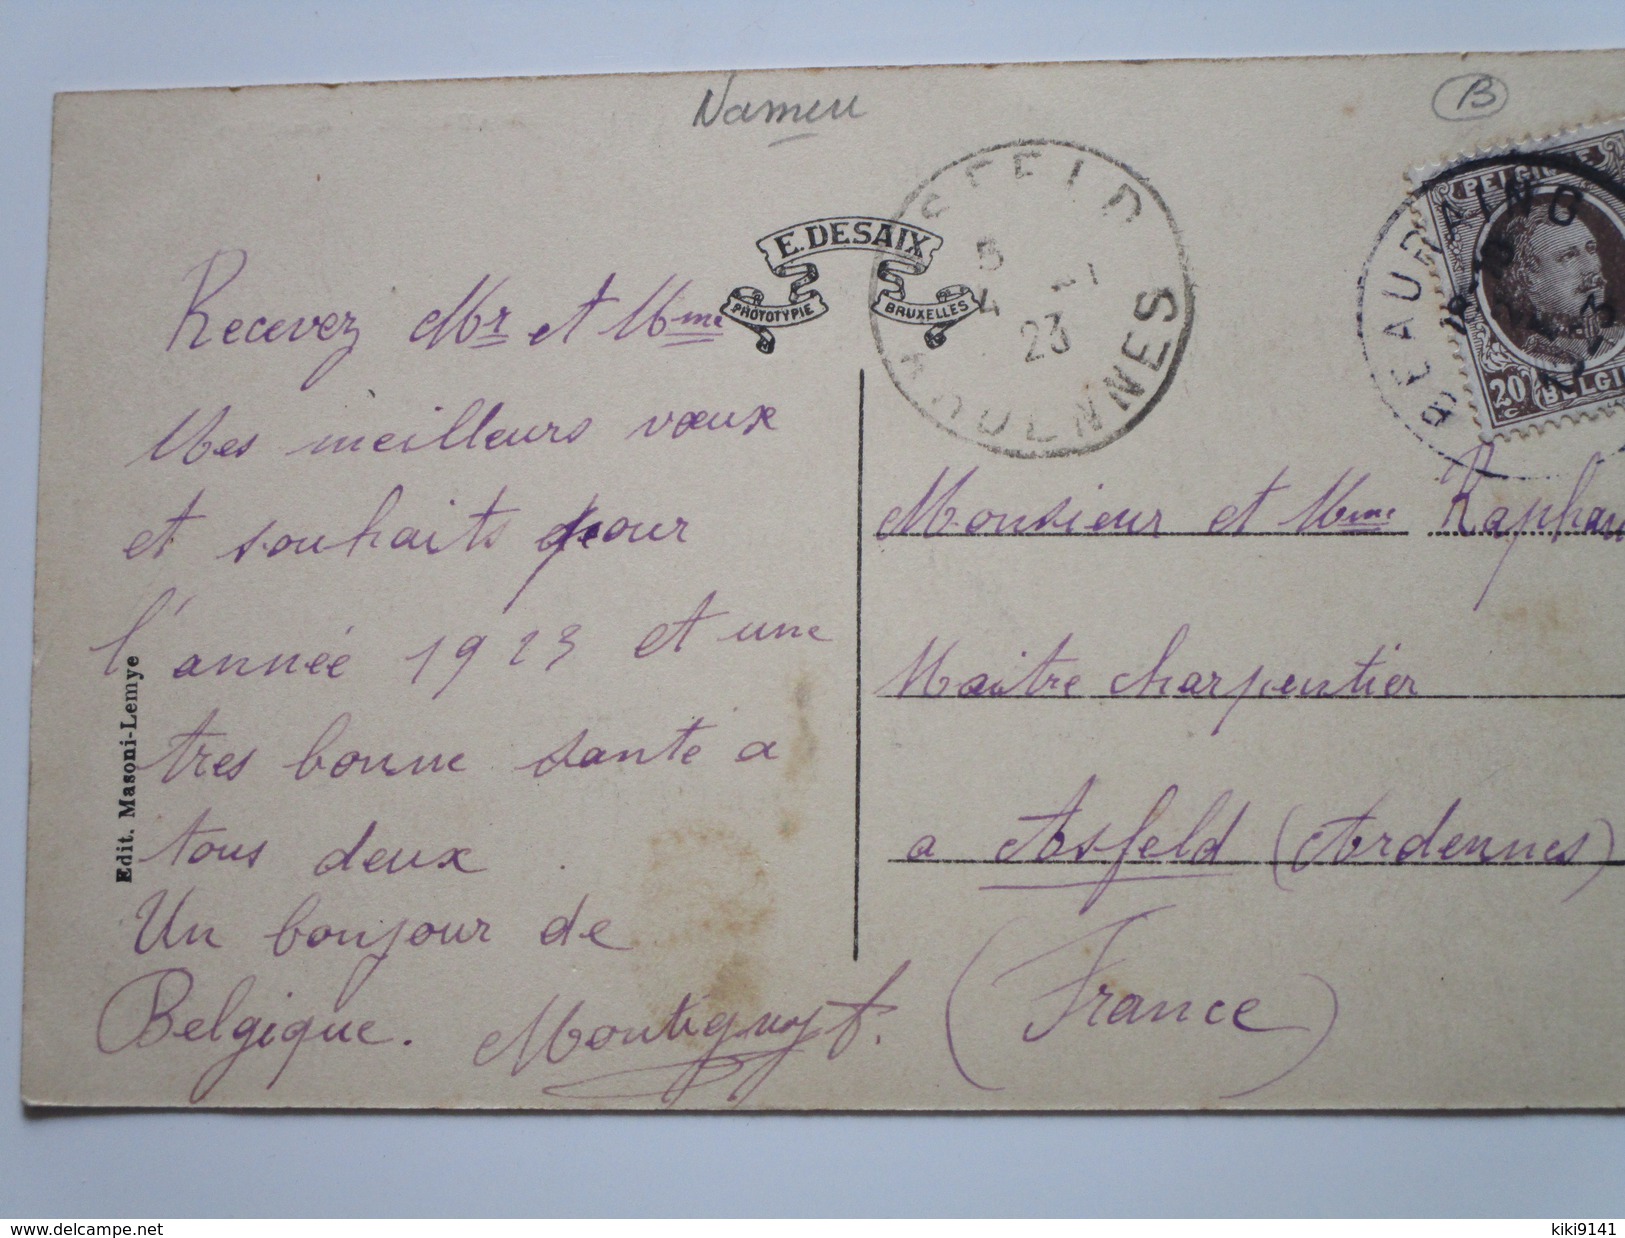 Namur
B
E. DESAIX
PROTOTYPIE
BRUXELLES
ASFELD
5
4 -1
23
ARDENNES
BELGIQUE
20 c
BELGIË
BEAURAING
Recevez Mr et Mme
Mes meilleurs vœux
et souhaits pour
l'année 1923 et une
tres bonne santé a
tous deux
Un bonjour de
Belgique. Montigny f.
Edit. Masoni-Lemye
Monsieur et Mme
Maitre charpentier
a Asfeld (Ardennes)
(France)
www.delcampe.net
kiki9141